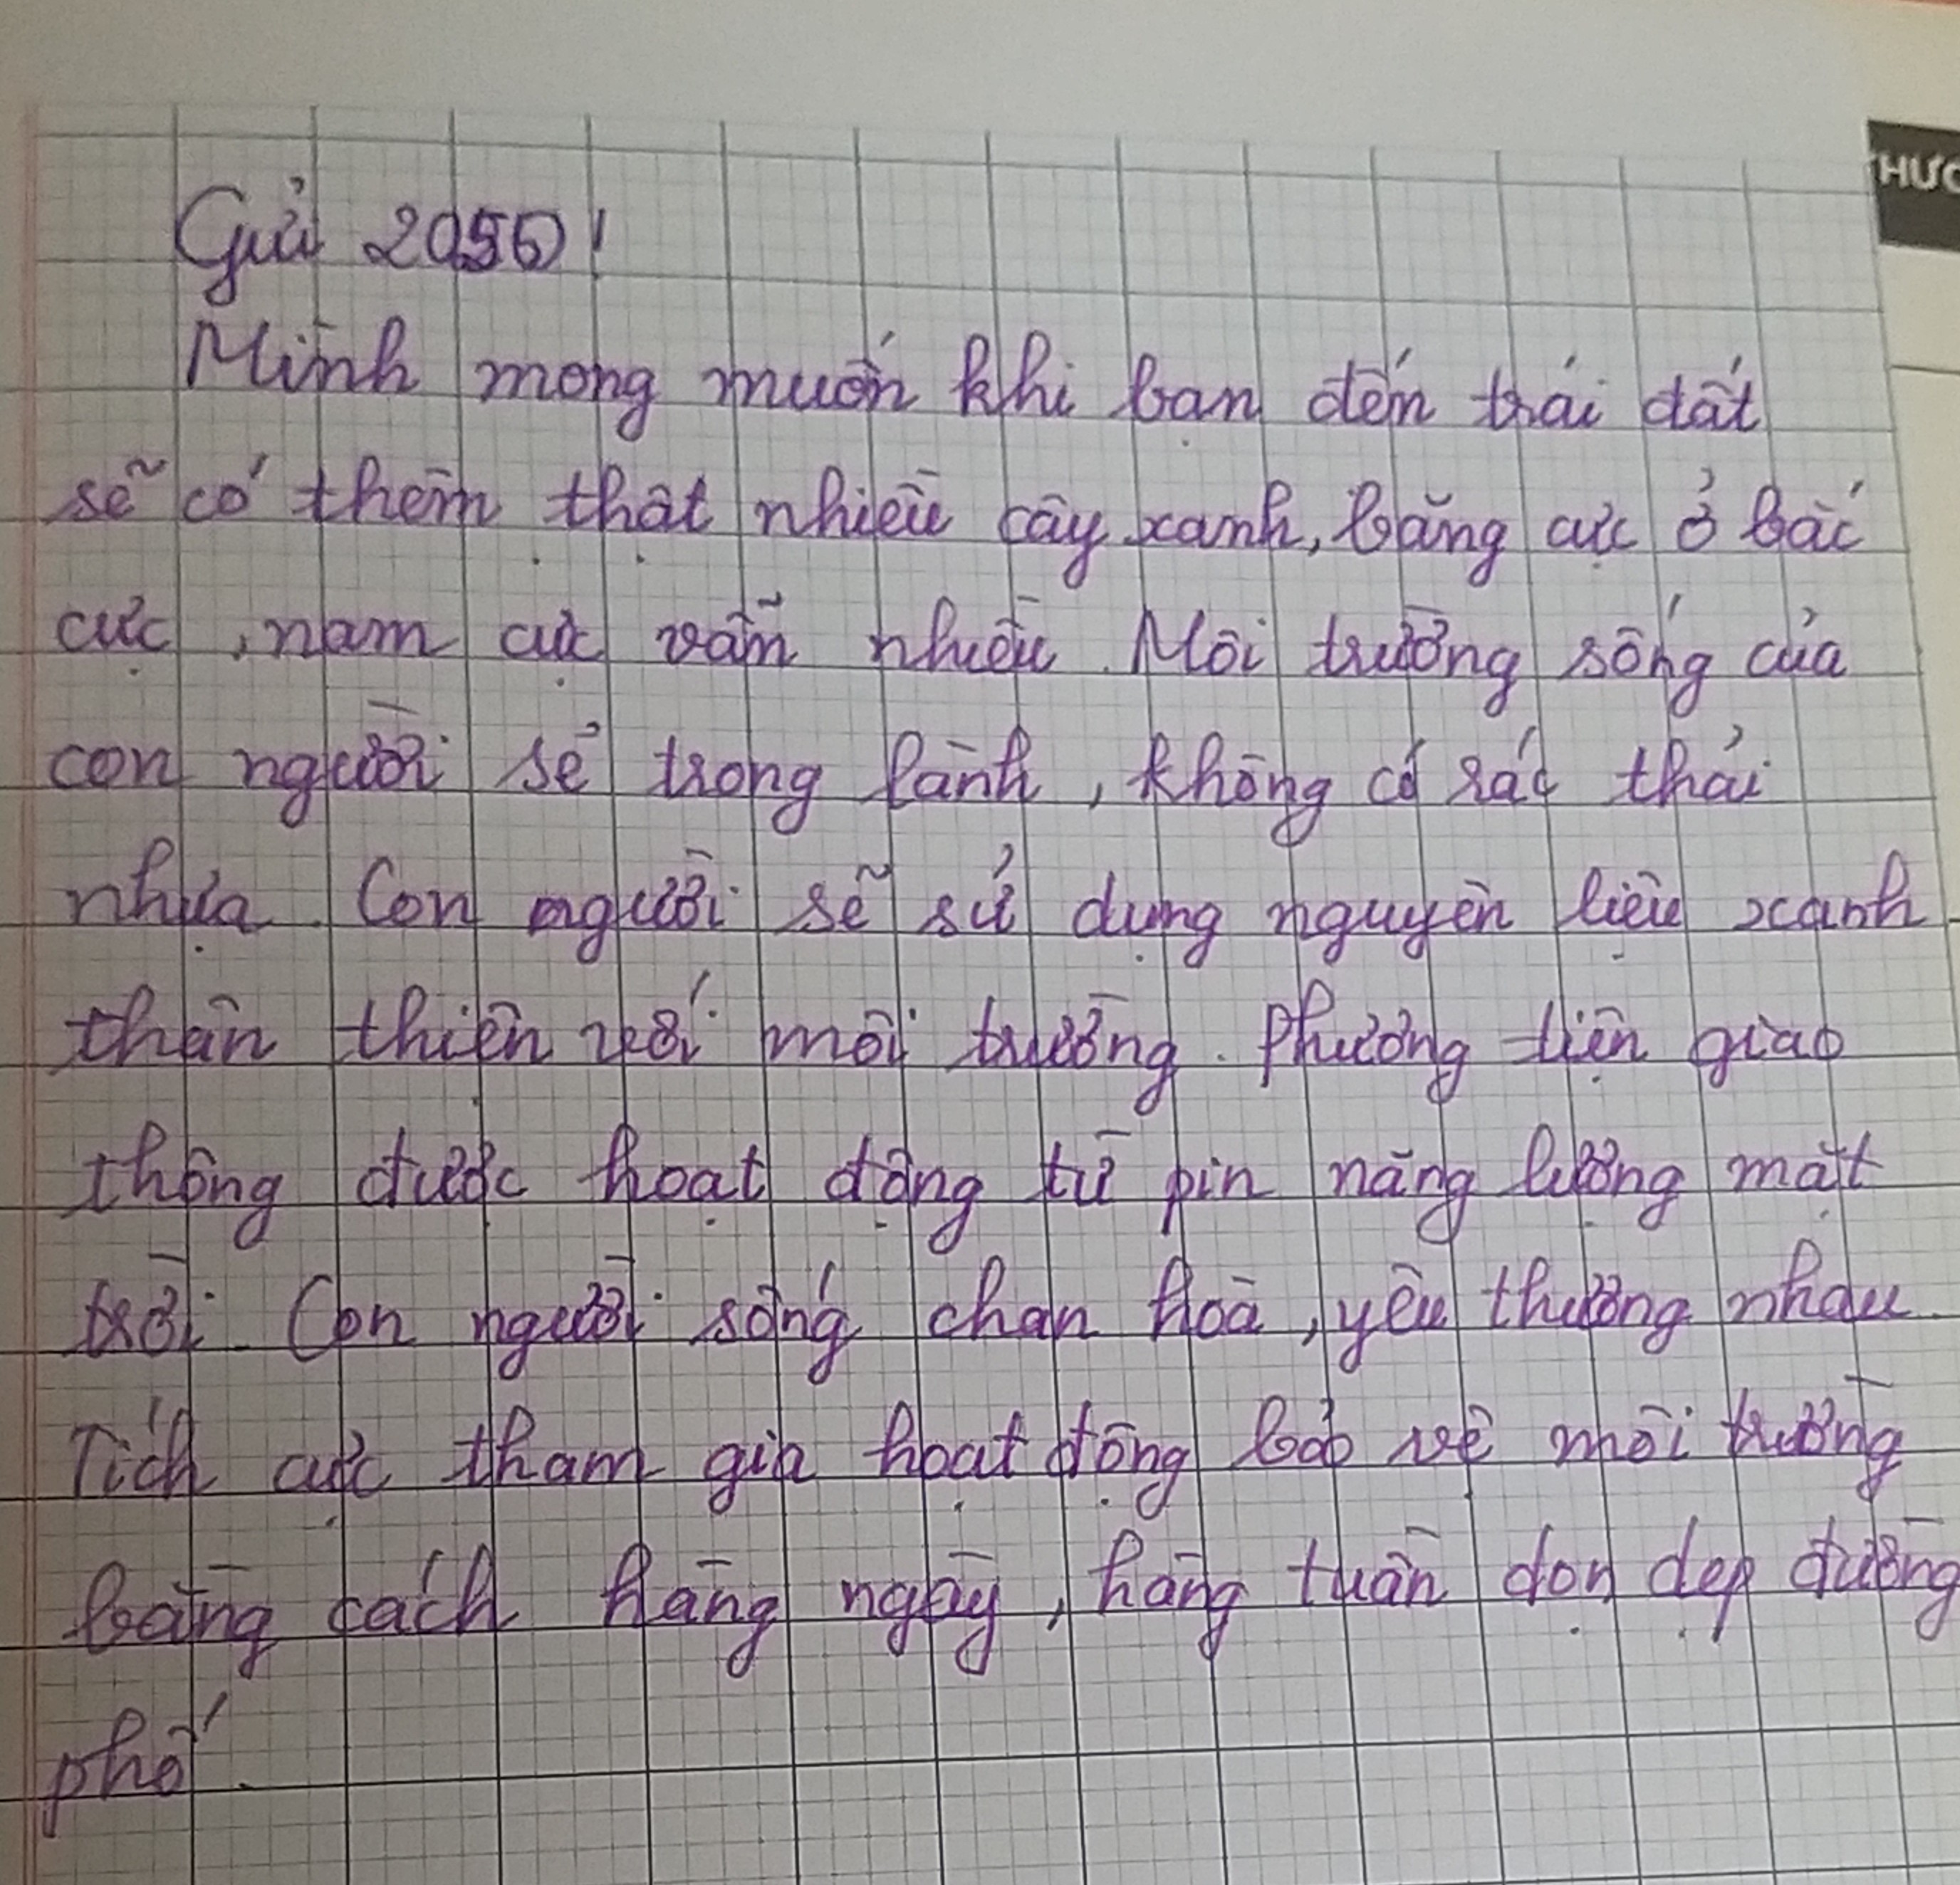 Gửi 2050!
Mình mong muốn khi bạn đến trái đất
sẽ có thêm thật nhiều cây xanh, băng cực ở bắc
cực, nam cực vẫn nhiều. Môi trường sống của
con người sẻ trong lành, không có rác thải
nhựa. Con người sẽ sử dụng nguyên liệu xanh
thân thiện với môi trường. Phương tiện giao
thông được hoạt động từ pin năng lượng mặt
trời. Con người sống chan hoà, yêu thương nhau.
Tích cực tham gia hoạt động bảo vệ môi trường
bằng cách hàng ngày, hàng tuần dọn dẹp đường
phố.
HƯC